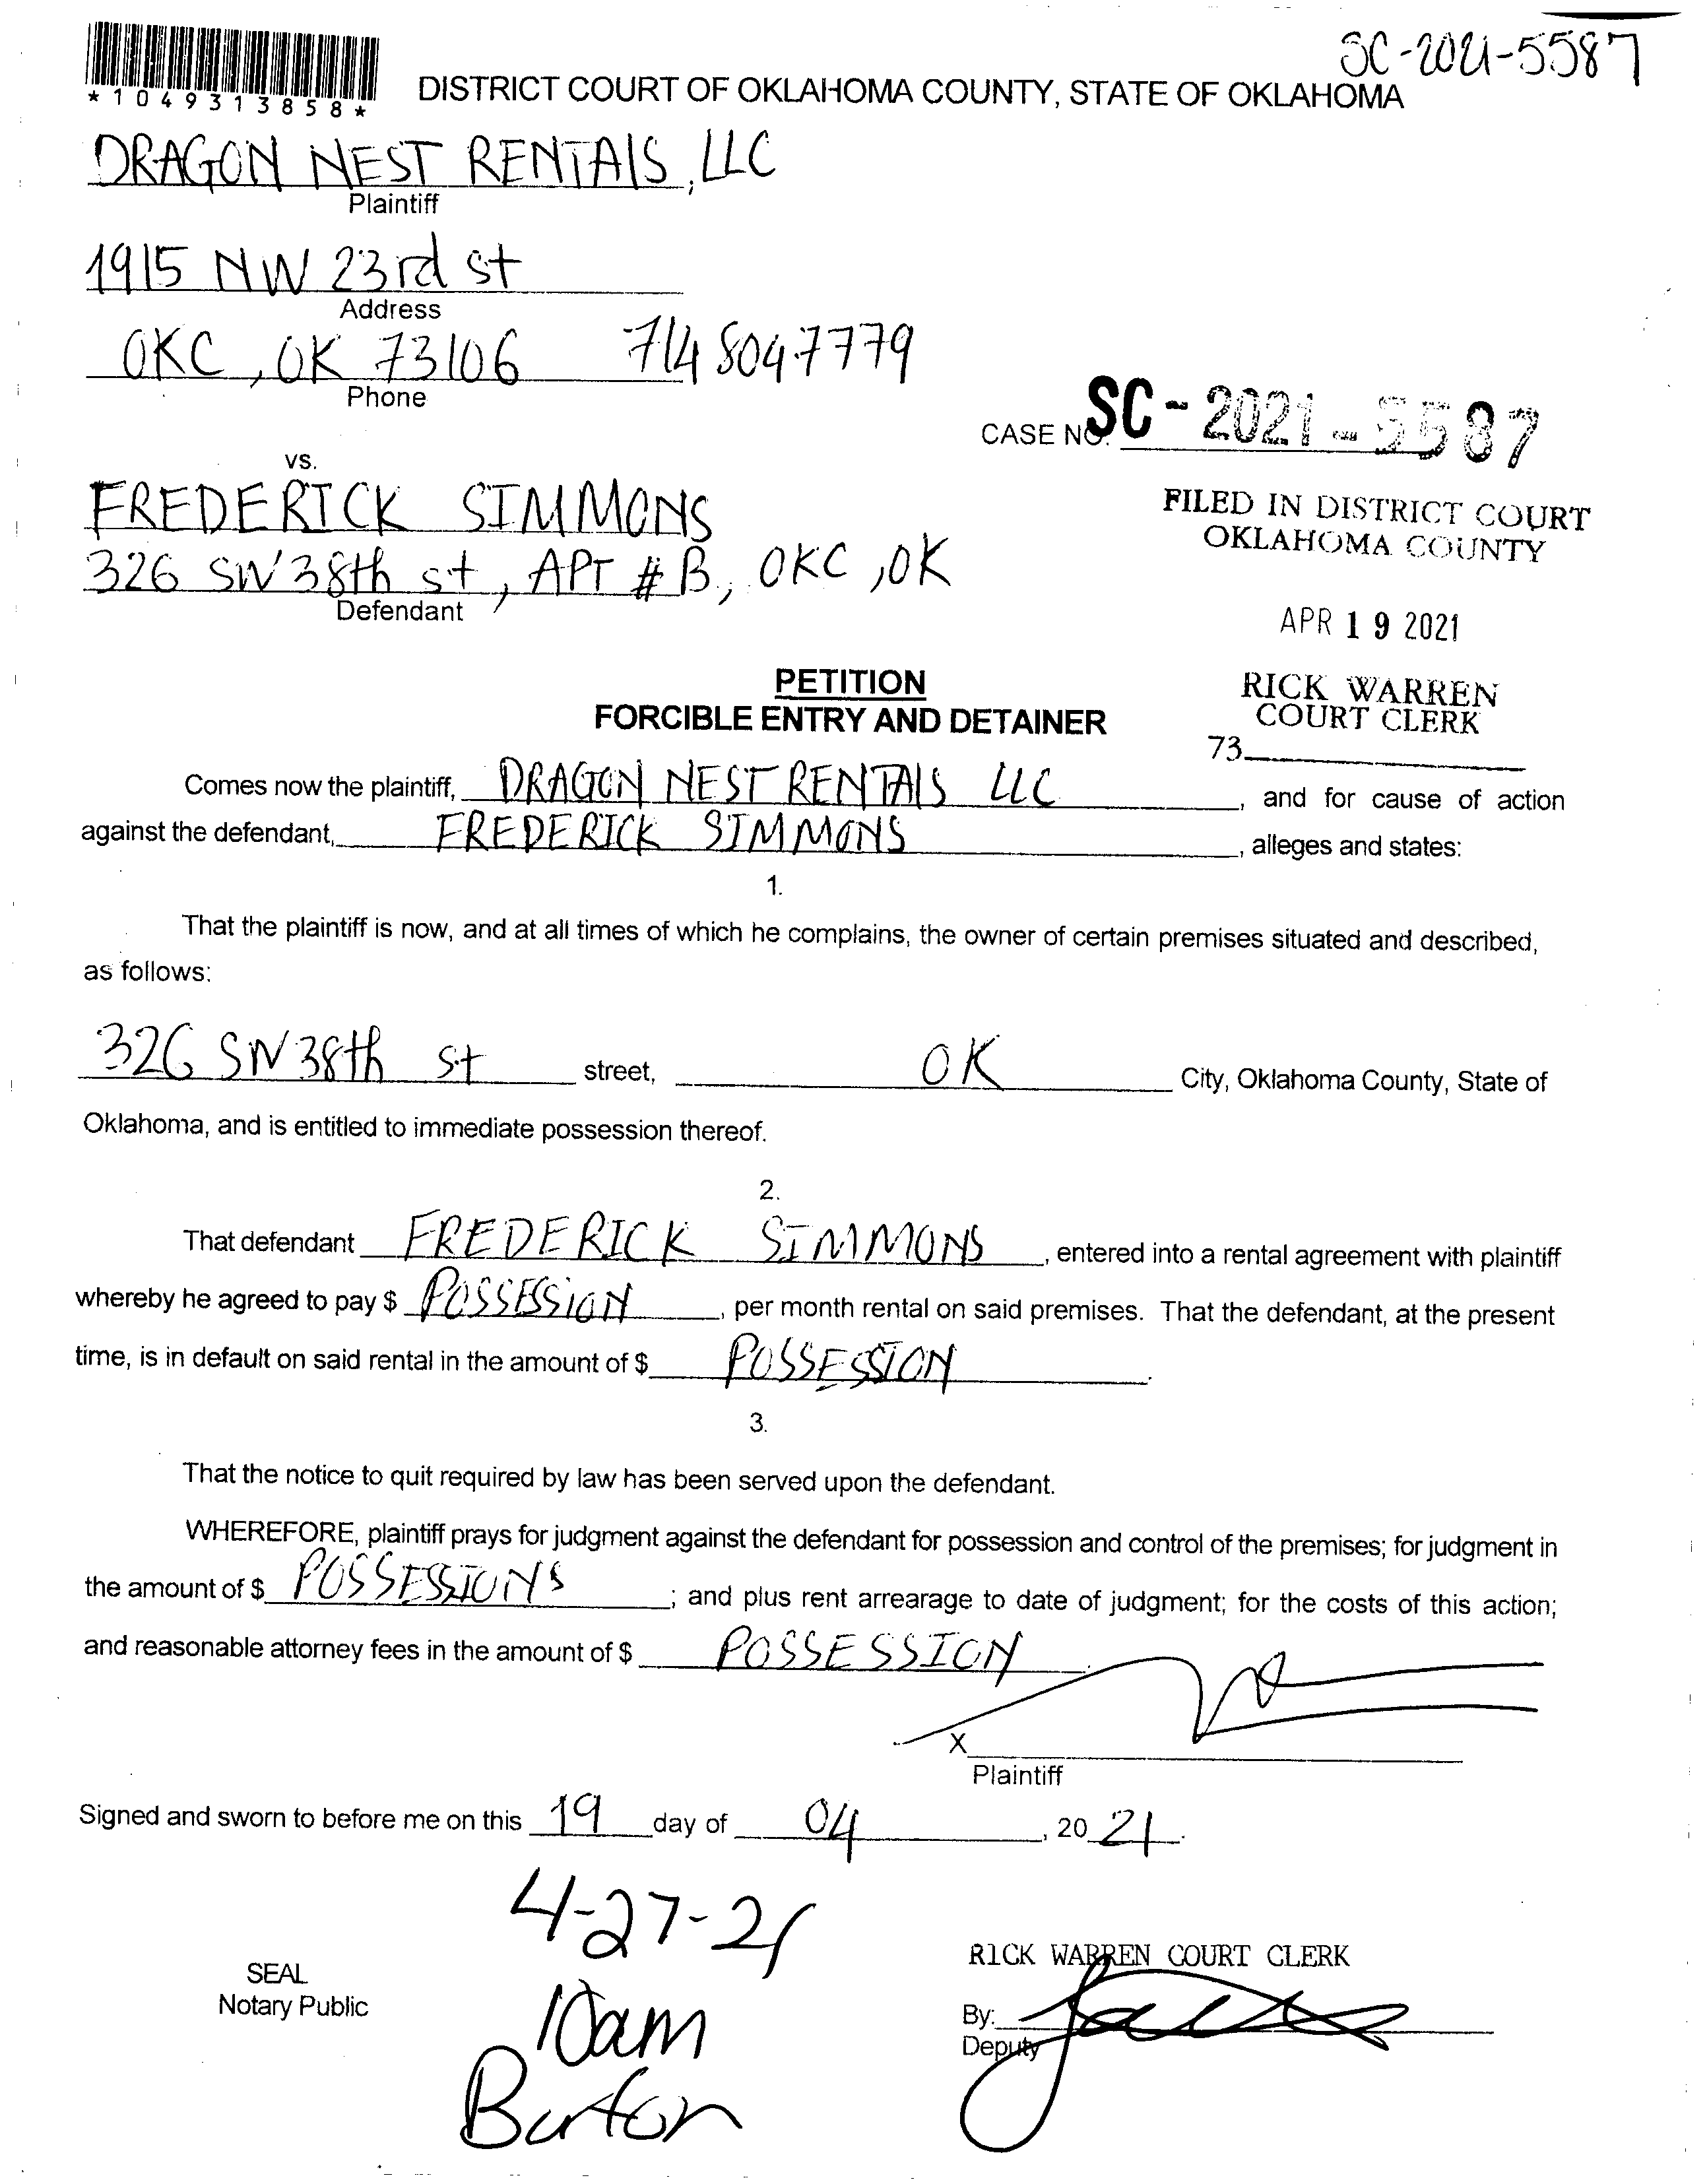 SC-2021-5587
*1049313858*
DISTRICT COURT OF OKLAHOMA COUNTY, STATE OF OKLAHOMA
DRAGON NEST RENTAlS, LLC
Plaintiff
1915 NW 23rd st
Address
OKC, OK 73106 714 804 7779
Phone
CASE NO. SC-2021-5587
vs.
FREDERICK SIMMONS
FILED IN DISTRICT COURT
OKLAHOMA COUNTY
326 SW 38th st, APT # B, OKC, OK
Defendant
APR 19 2021
PETITION
FORCIBLE ENTRY AND DETAINER
RICK WARREN
COURT CLERK
73
Comes now the plaintiff, DRAGON NEST RENTAlS LLC, and for cause of action
against the defendant, FREDERICK SIMMONS, alleges and states:
1.
That the plaintiff is now, and at all times of which he complains, the owner of certain premises situated and described,
as follows:
326 SW 38th st street, OK City, Oklahoma County, State of
Oklahoma, and is entitled to immediate possession thereof.
2.
That defendant FREDERICK SIMMONS, entered into a rental agreement with plaintiff
whereby he agreed to pay $ POSSESSION, per month rental on said premises. That the defendant, at the present
time, is in default on said rental in the amount of $ POSSESSION.
3.
That the notice to quit required by law has been served upon the defendant.
WHEREFORE, plaintiff prays for judgment against the defendant for possession and control of the premises; for judgment in
the amount of $ POSSESSIONS; and plus rent arrearage to date of judgment; for the costs of this action;
and reasonable attorney fees in the amount of $ POSSESSION.
X
Plaintiff
Signed and sworn to before me on this 19 day of 04, 20 21.
4-27-21
10am
Burton
SEAL
Notary Public
RICK WARREN COURT CLERK
By:
Deputy